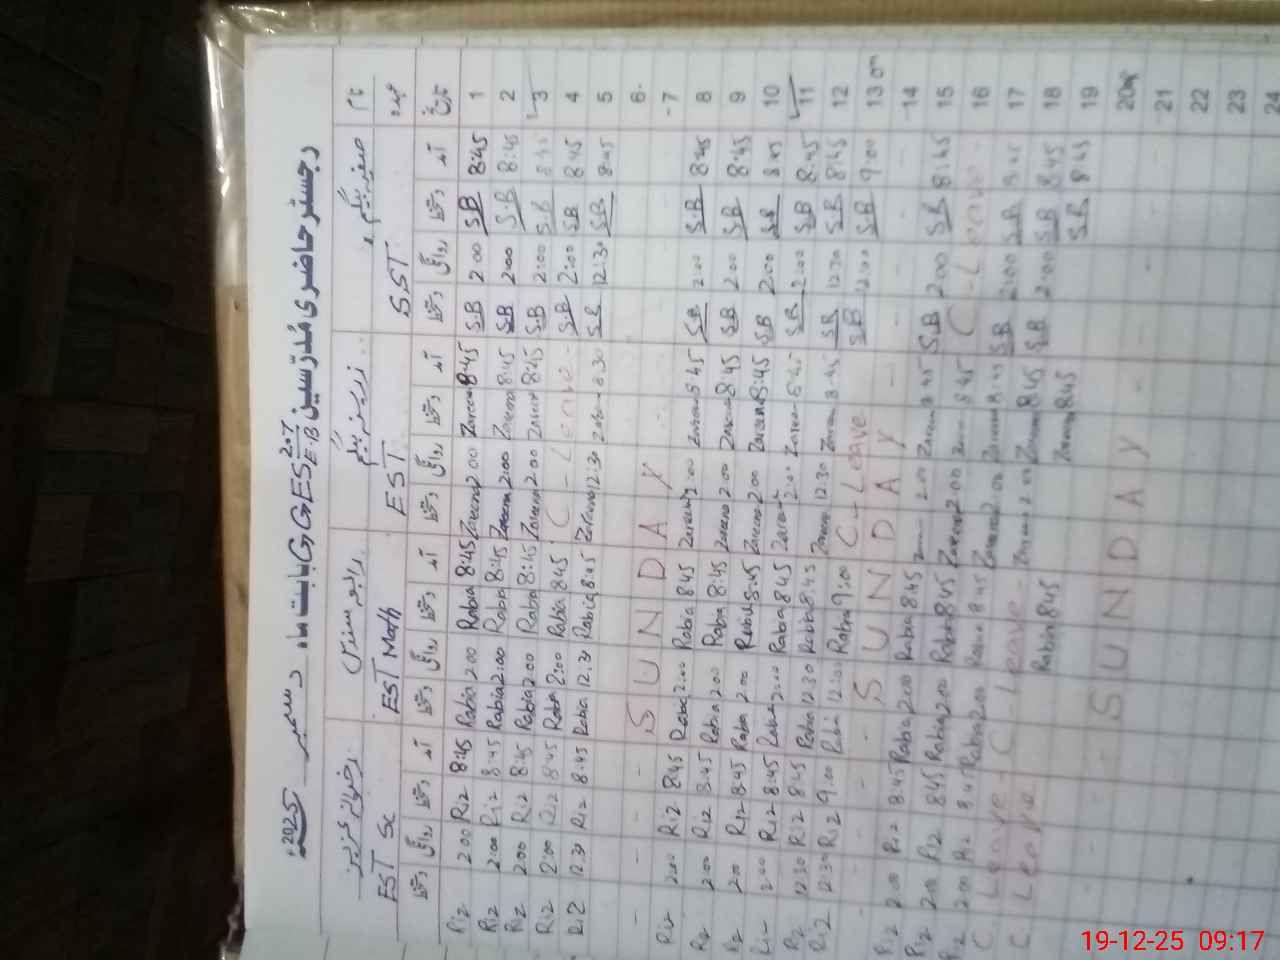 رجسٹر حاضری مدرسین GGES 207 E.B بابت ماہ دسمبر 2025
نام صفیہ بیگم زرینہ بیگم رضوانہ عزیز
عہدہ SST EST EST Math EST Sc
تاریخ آمد دستخط روانگی دستخط آمد دستخط روانگی دستخط آمد دستخط روانگی دستخط آمد دستخط روانگی دستخط
1 8:45 SB 2:00 SB 8:45 Zareena 2:00 Zareena 8:45 Rabia 2:00 Rabia 8:45 Riz 2:00 Riz
2 8:45 S.B 2:00 SB 8:45 Zareena 2:00 Zareena 8:45 Rabia 2:00 Rabia 8:45 Riz 2:00 Riz
3 8:45 SB 2:00 SB 8:45 Zareena 2:00 Zareena 8:45 Rabia 2:00 Rabia 8:45 Riz 2:00 Riz
4 8:45 SB 2:00 SB C-Leave 8:45 Rabia 2:00 Rabia 8:45 Riz 2:00 Riz
5 8:45 SB 12:30 SB 8:30 Zareena 12:30 Zareena 8:45 Rabia 12:30 Rabia 8:45 Riz 12:30 Riz
6
7 SUNDAY
8 8:45 S.B 2:00 SB 8:45 Zareena 2:00 Zareena 8:45 Rabia 2:00 Rabia 8:45 Riz 2:00 Riz
9 8:45 SB 2:00 SB 8:45 Zareena 2:00 Zareena 8:45 Rabia 2:00 Rabia 8:45 Riz 2:00 Riz
10 8:45 SB 2:00 SB 8:45 Zareena 2:00 Zareena 8:45 Rabia 2:00 Rabia 8:45 Riz 2:00 Riz
11 8:45 SB 2:00 SB 8:45 Zareena 2:00 Zareena 8:45 Rabia 2:00 Rabia 8:45 Riz 2:00 Riz
12 8:45 SB 12:30 SB 8:45 Zareena 12:30 Zareena 8:45 Rabia 12:30 Rabia 8:45 Riz 12:30 Riz
13 9:00 SB 12:00 SB C-Leave 9:00 Rabia 12:00 Rabia 9:00 Riz 12:30 Riz
14 SUNDAY
15 8:45 SB 2:00 SB 8:45 Zareena 2:00 8:45 Rabia 2:00 Rabia 8:45 Riz 2:00 Riz
16 C-Leave 8:45 2:00 Zareena 8:45 Rabia 2:00 Rabia 8:45 Riz 2:00 Riz
17 8:45 SB 2:00 SB 8:45 Zareena 2:00 Zareena 8:45 Rabia 2:00 Rabia 8:45 Riz 2:00 Riz
18 8:45 SB 2:00 SB 8:45 Zareena 2:00 Zareena C-Leave C-Leave
19 8:45 SB 8:45 Zareena 8:45 Rabia C Leave
20
21 SUNDAY
22
23
24
19-12-25 09:17